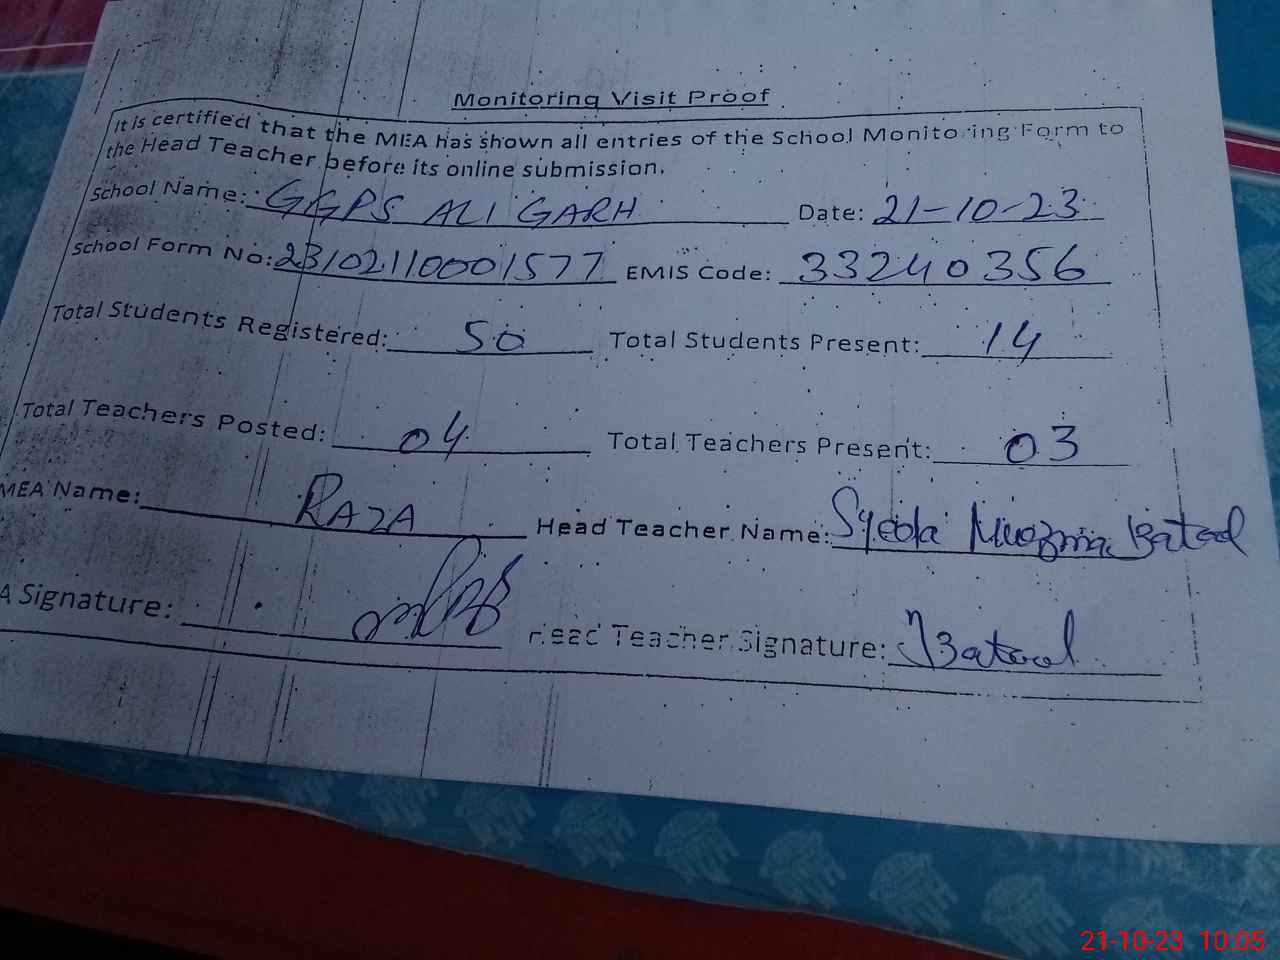 Monitoring Visit Proof
It is certified that the MEA has shown all entries of the School Monitoring Form to
the Head Teacher before its online submission.
School Name: GGPS ALI GARH Date: 21-10-23
School Form No: 23102110001577 EMIS Code: 33240356
Total Students Registered: 50 Total Students Present: 14
Total Teachers Posted: 04 Total Teachers Present: 03
MEA Name: RAZA Head Teacher Name: Syeda Batool
A Signature: Head Teacher Signature: Batool
21-10-23 10:05